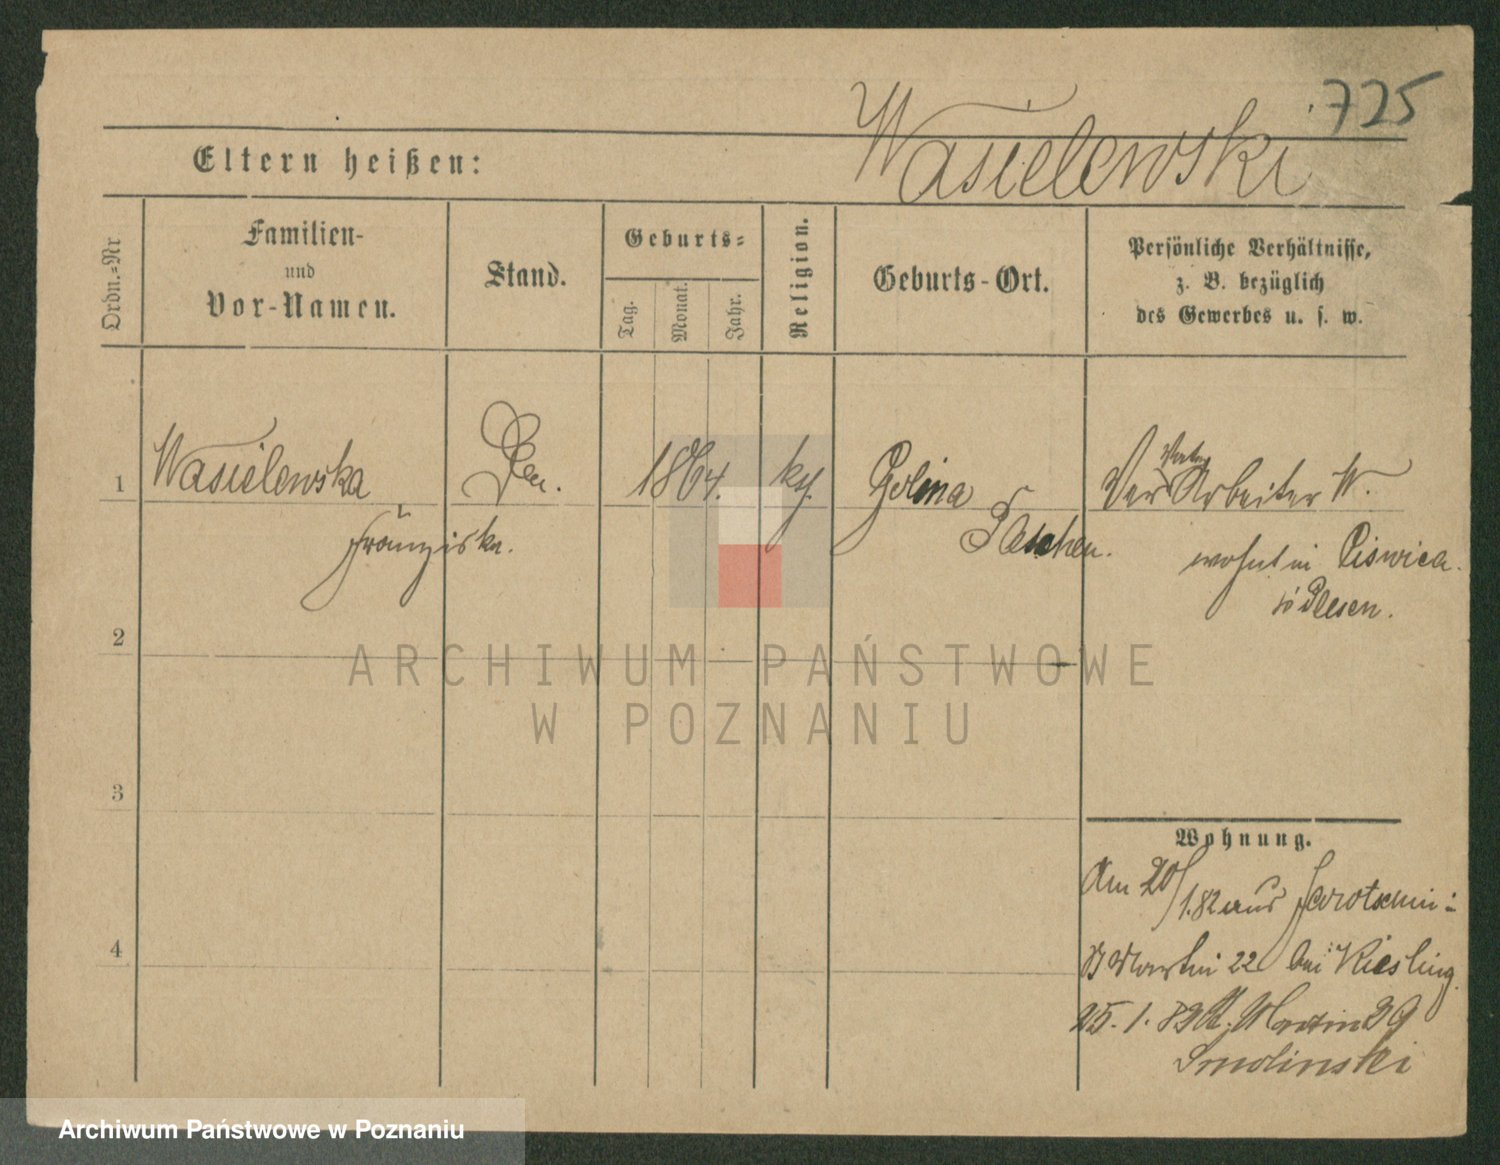 725
Wasielewski
Eltern heißen:
Ordn.=Nr
Familien-
und
Vor-Namen.
Stand.
Geburts=
Tag.
Monat.
Jahr.
Religion.
Geburts-Ort.
Persönliche Verhältnisse,
z. B. bezüglich
des Gewerbes u. s. w.
1
Wasielewska
Franziska.
1864.
Golina
Pleschen.
Vater
Der Arbeiter W.
wohnt in
2
3
4
Wohnung.
Am 20/1.82 aus Jarotschin:
Martin 22 bei Kiesling
25.1.82 St. Martin 39
Smolinski
ARCHIWUM PAŃSTWOWE
W POZNANIU
Archiwum Państwowe w Poznaniu